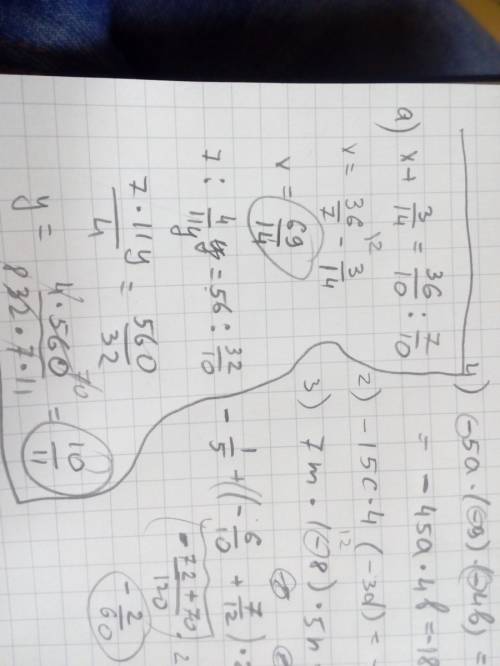 a) x + 3/14 = 36/10 : 7/10
x = 36/7 - 3/14
x = 69/14
7 : 4/11y = 56 : 32/10
7·11y/4 = 560/32
y = 4·560/32·7·11 = 10/11
4) (-5a·(-9)·(-4b) =
= -45a·4b = -18
2) -15c·4(-3d) =
3) 7m·(-8)·5n
-1/5 + ((-6/10 + 7/12)·
-72+70/120
-2/60